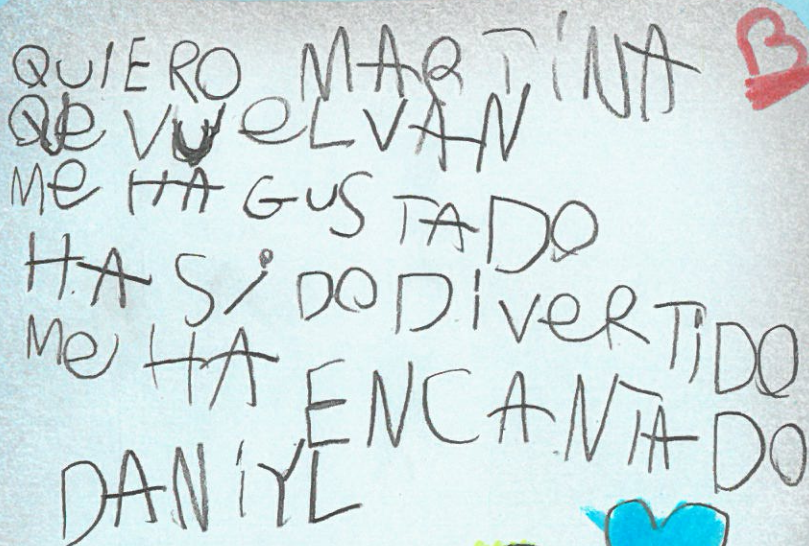 QUIERO MARTiNA
Que VueLVAN
Me HA GUSTADO
HA SiDO DiVeRTiDO
Me HA ENCANTADO
DANiYL